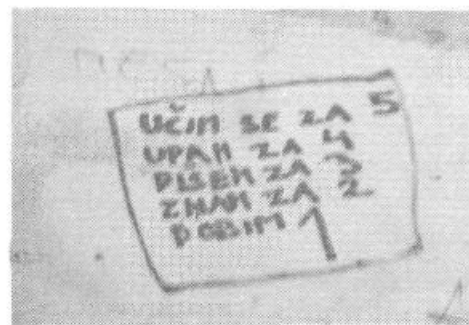 UČIM SE ZA 5
UPAM ZA 4
PIŠEM ZA 3
ZNAM ZA 2
DOBIM 1